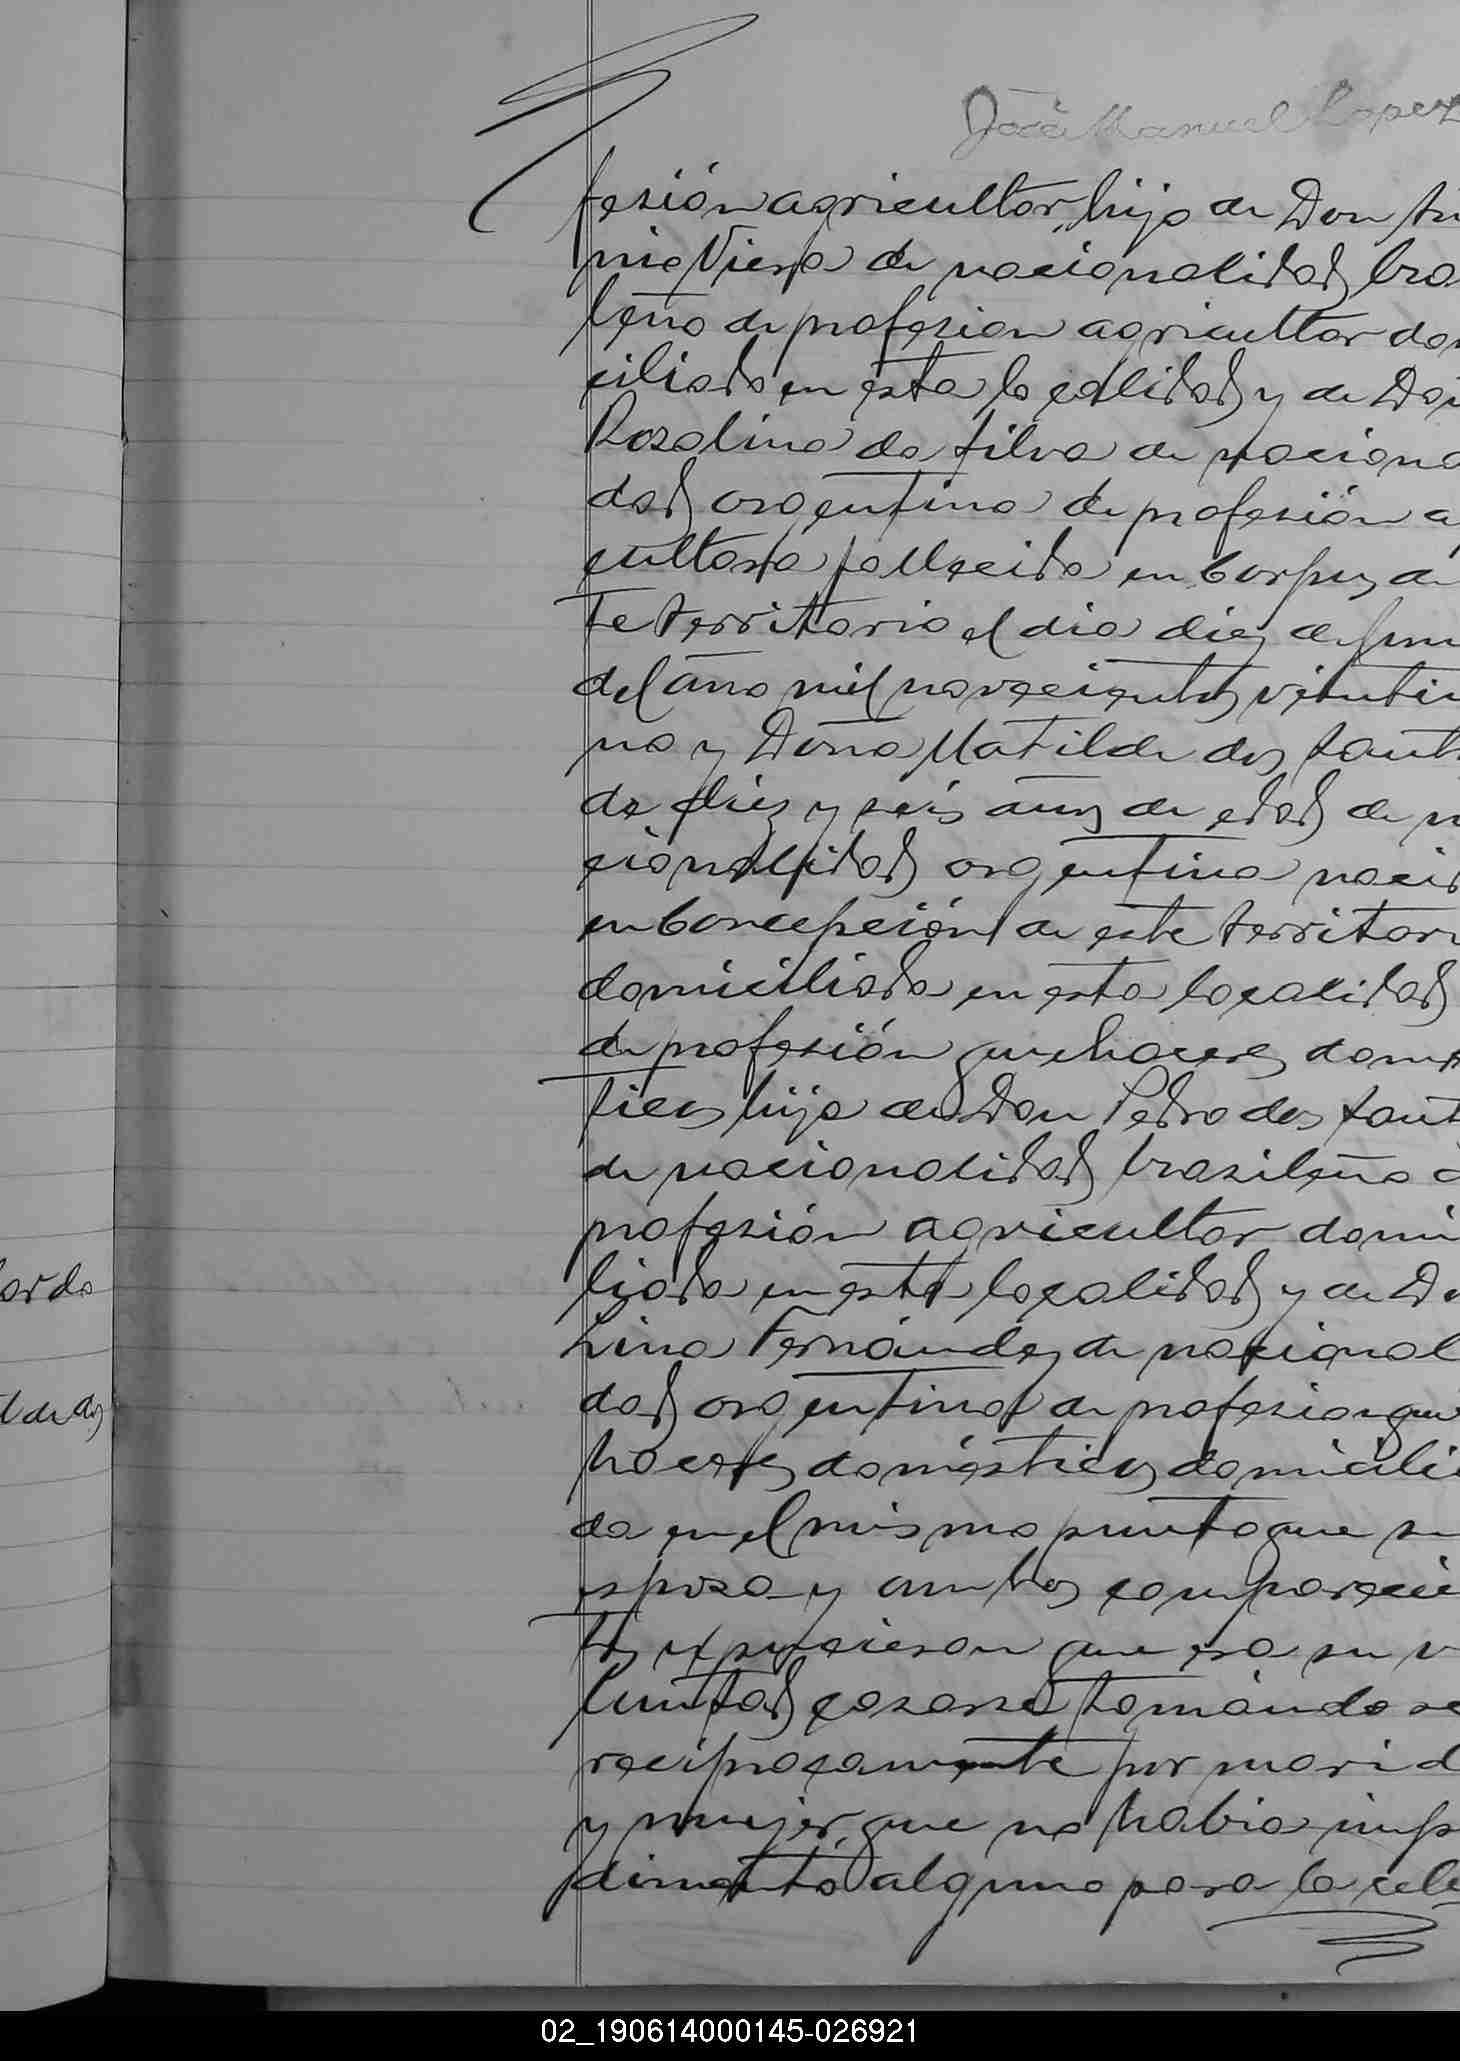 José Manuel Lopez
fesión agricultor, hijo de Don An
nio Viera de nacionalidad bra
leño de profesion agricultor do
ciliado en esta localidad y de Do
Rosalina da Silva de naciona
dad argentina de profesión a
cultora fallecida en Corpus de
te territorio el dia diez de
del año mil novecientos veintiu
no y Doña Matilde dos Sant
de diez y seis años de edad de n
cionalidad argentina nacid
en Concepción de este territori
domiciliada en esta localidad
de profesión quehaceres domes
ticos hija de Don Pedro dos Sant
de nacionalidad brasileño d
profesión agricultor domi
liado en esta localidad y de Do
Lina Fernández de nacional
dad argentina de profesion que
haceres domésticos domicilia
da en el mismo punto que su
esposo y ambos comparecie
tes expusieron que era su v
luntad casarse tomándose
reciprocamente por marid
y mujer, que no habia impe
dimento alguno para la cele
ardo
lde dos
02_190614000145-026921